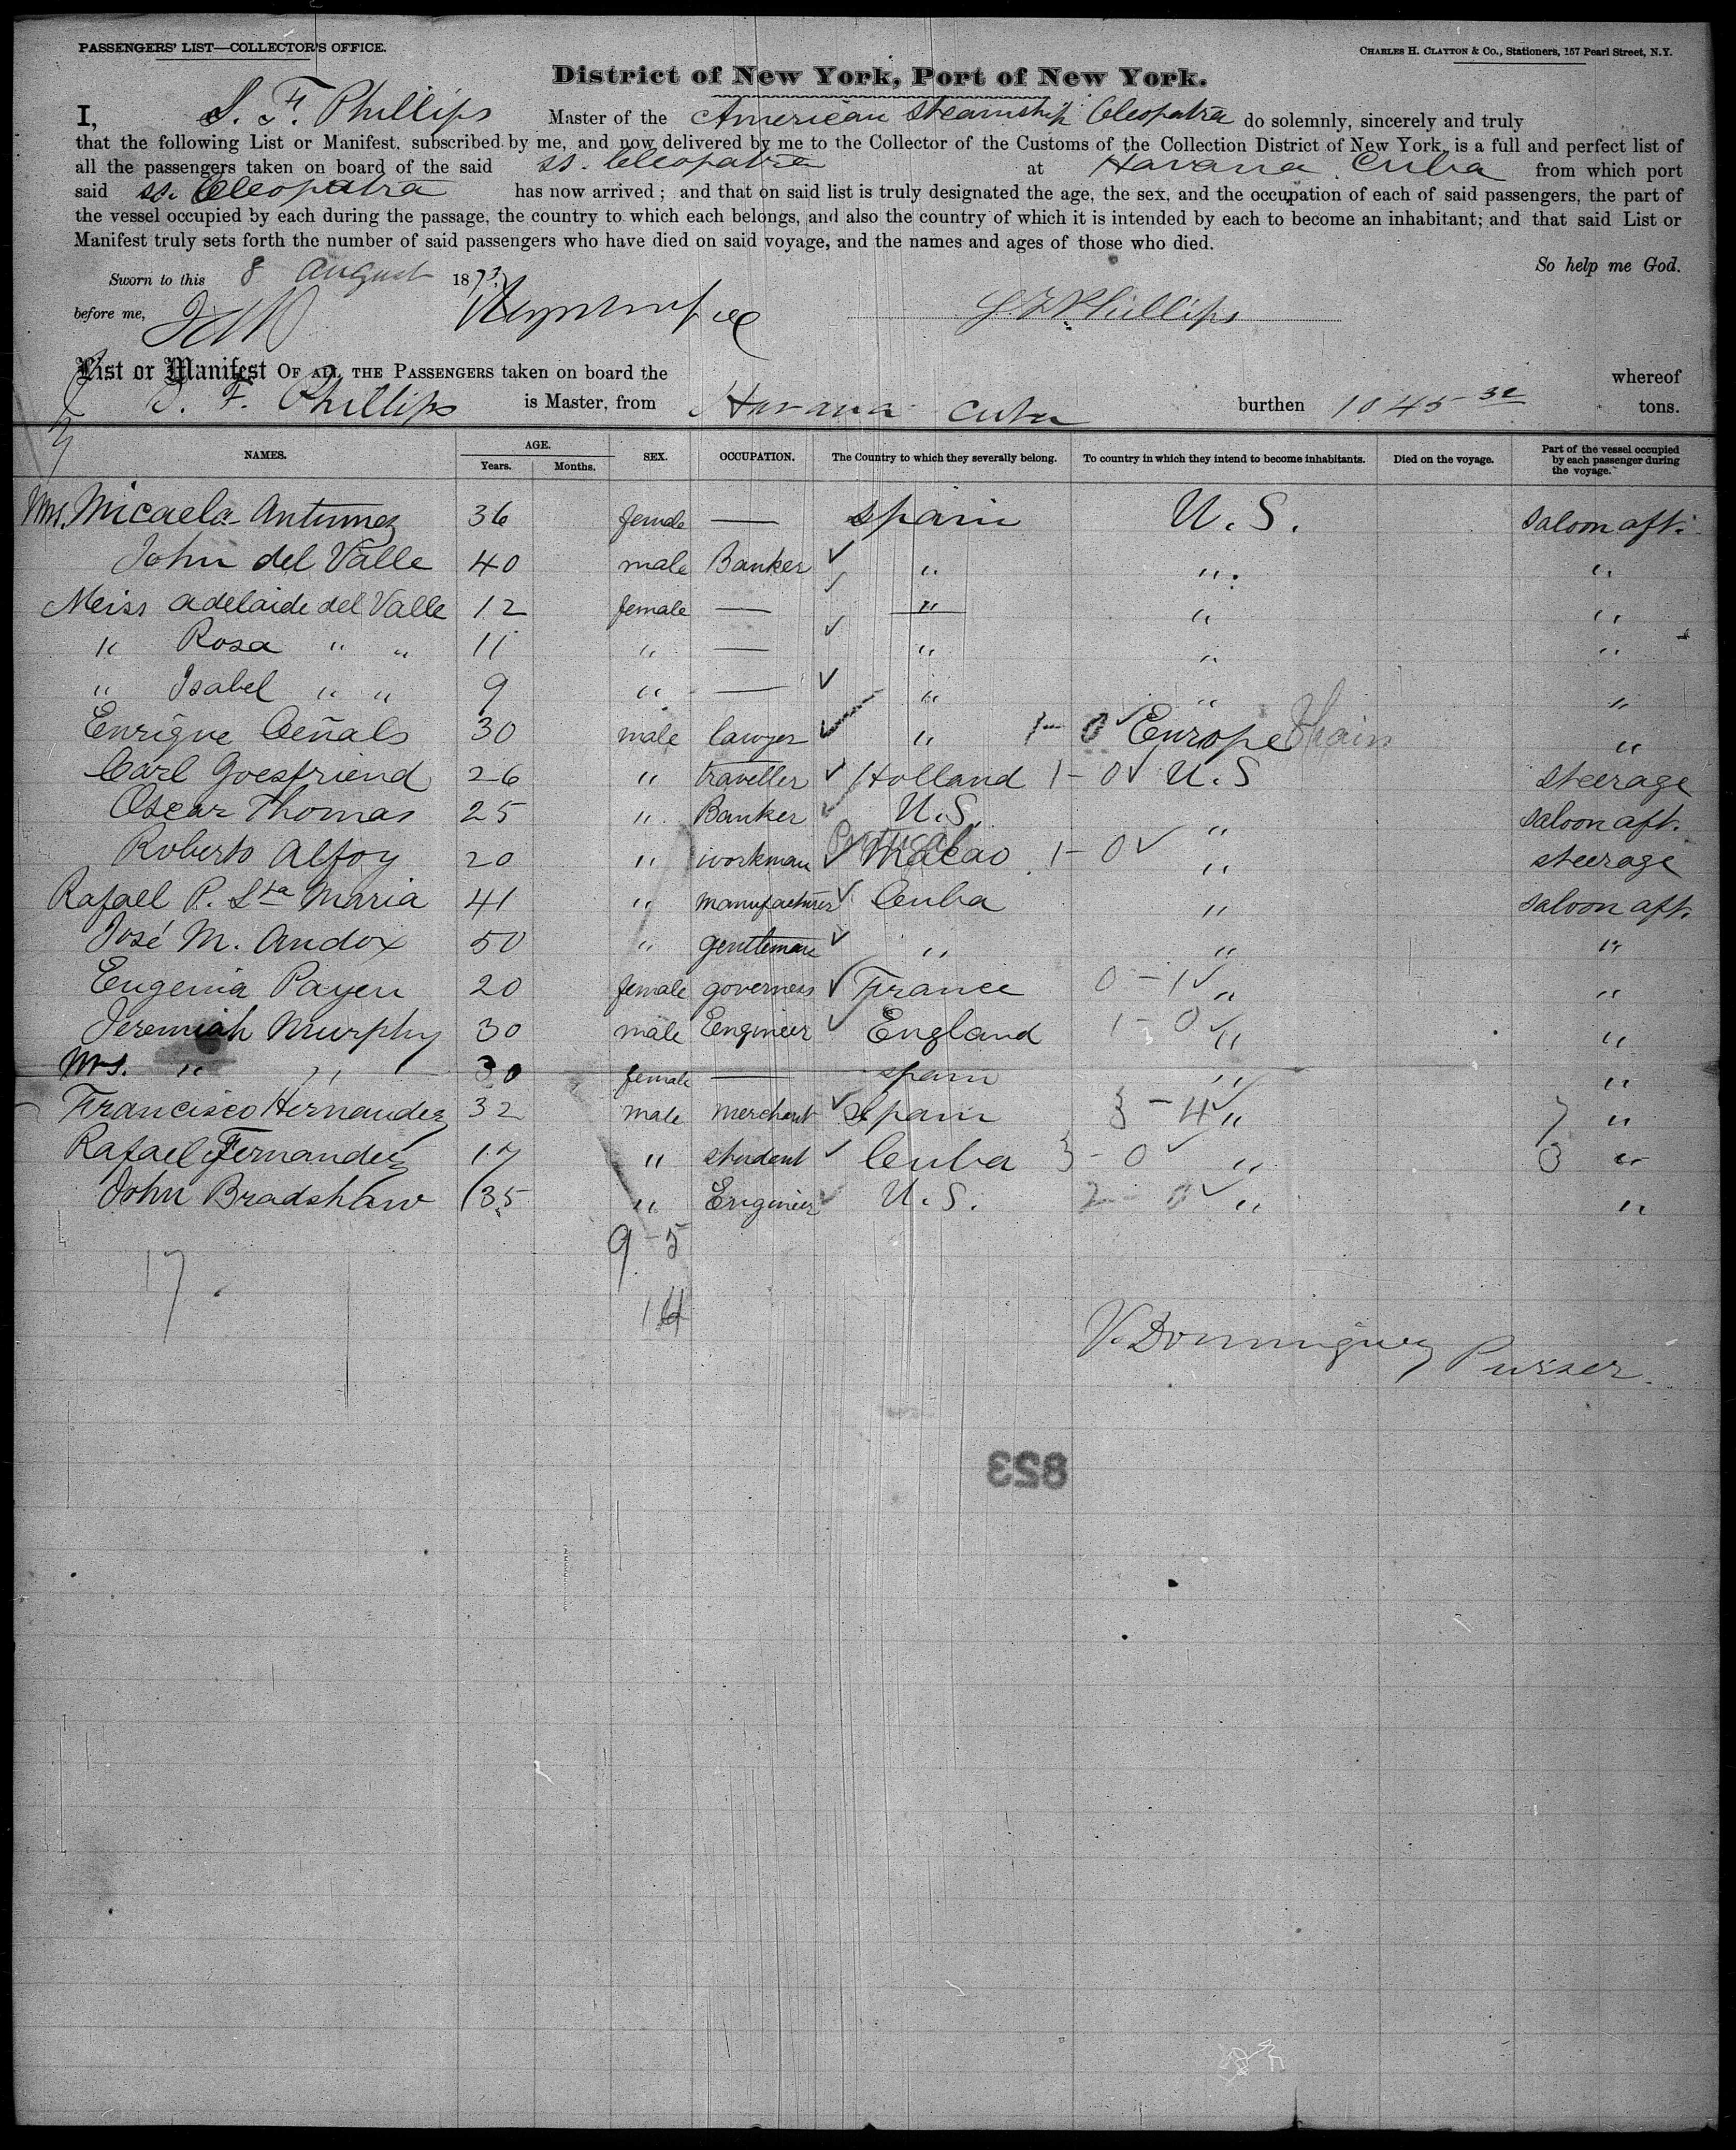 PASSENGERS' LIST—COLLECTOR'S OFFICE.
CHARLES H. CLAYTON & Co., Stationers, 157 Pearl Street, N.Y.
District of New York, Port of New York.
I, S. F. Phillips Master of the American Steamship Cleopatra do solemnly, sincerely and truly
that the following List or Manifest, subscribed by me, and now delivered by me to the Collector of the Customs of the Collection District of New York, is a full and perfect list of
all the passengers taken on board of the said ss. Cleopatra at Havana Cuba from which port
said ss. Cleopatra has now arrived; and that on said list is truly designated the age, the sex, and the occupation of each of said passengers, the part of
the vessel occupied by each during the passage, the country to which each belongs, and also the country of which it is intended by each to become an inhabitant; and that said List or
Manifest truly sets forth the number of said passengers who have died on said voyage, and the names and ages of those who died.
So help me God.
Sworn to this 8 August 1873
before me,
S F Phillips
List or Manifest OF ALL THE PASSENGERS taken on board the whereof
S. F. Phillips is Master, from Havana Cuba burthen 1045 32 tons.
NAMES. AGE. Years. Months. SEX. OCCUPATION. The Country to which they severally belong. To country in which they intend to become inhabitants. Died on the voyage. Part of the vessel occupied by each passenger during the voyage.
Mrs. Micaela Antunez 36 female — Spain U.S. Saloon aft.
John del Valle 40 male Banker ✓ " " "
Meiss Adelaide del Valle 12 female — ✓ " " "
" Rosa " " 11 " — ✓ " " "
" Isabel " " 9 " — ✓ " " "
Enrique Ceñals 30 male lawyer ✓ " 1-0 ✓ Europe Spain "
Carl Goesfriend 26 " traveller ✓ Holland 1-0 ✓ U.S steerage
Oscar Thomas 25 " Banker ✓ U.S. " saloon aft.
Roberto Alfoy 20 " workman ✓ Portugal Macao 1-0 ✓ " steerage
Rafael P. Sta Maria 41 " manufacturer ✓ Cuba " saloon aft.
José M. Andox 50 " gentleman ✓ " " "
Eugenia Payen 20 female governess ✓ France 0-1 ✓ " "
Jeremiah Murphy 30 male Eengineer ✓ England 1-0 ✓ " "
Mrs. " " 30 female — Spain " "
Francisco Hernandez 32 male merchant ✓ Spain 3-4 ✓ " 7 "
Rafael Fernandez 17 " student ✓ Cuba 3-0 ✓ " 3 "
John Bradshaw 35 " Engineer ✓ U.S. 2-0 ✓ " "
9-5
17
14
V. Dominguez Purser.
823